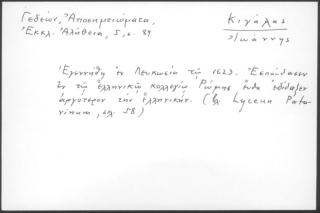 Γεδεών, Ἀποσημειώματα,
Ἐκκλ. Ἀλήθεια, 5, σ. 89
Κιγάλας
Ἰωάννης
Ἐγεννήθη ἐν Λευκωσίᾳ τῷ 1623. Ἐσπούδασεν
ἐν τῷ ἑλληνικῷ κολλεγίῳ Ῥώμης ἔνθα ἐδίδαξεν
ἀργότερον τὴν ἑλληνικήν. (βλ. Lyceum Pata-
vinum, σελ. 58)